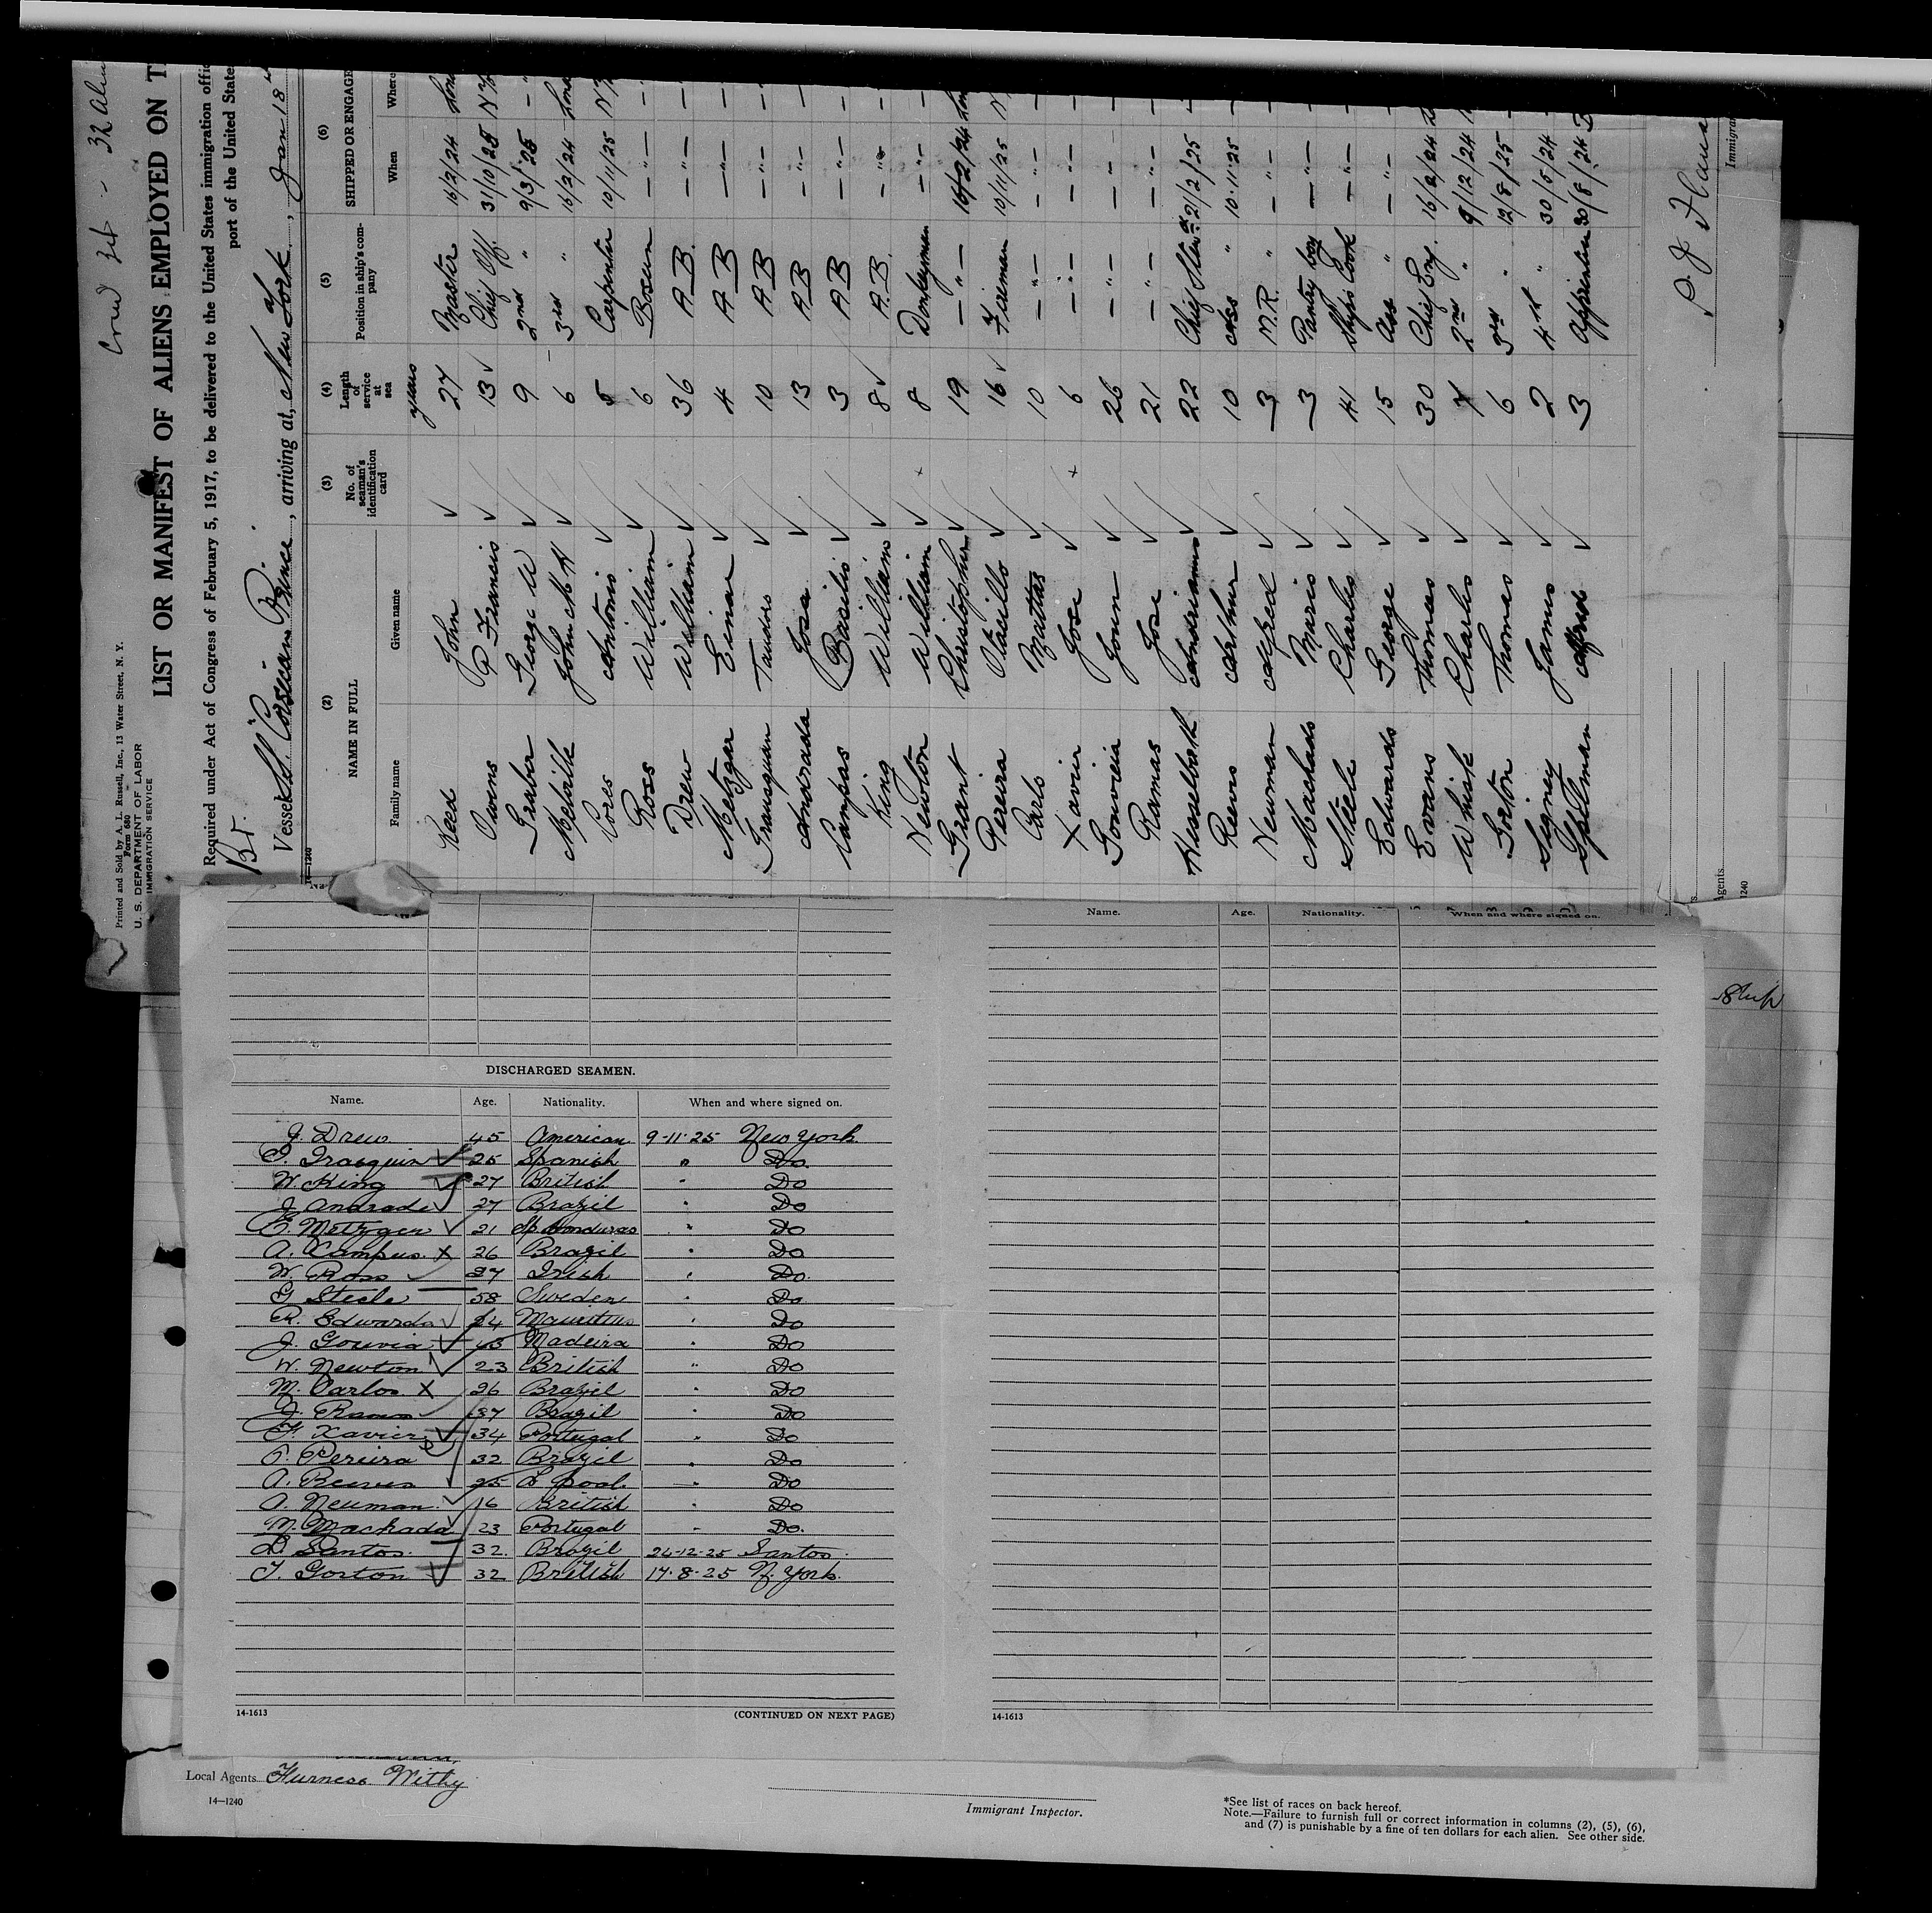 Crew list - 32 Alien
Printed and Sold by A. L. Russell, Inc., 13 Water Street, N. Y.
Form 680
U. S. DEPARTMENT OF LABOR
IMMIGRATION SERVICE
LIST OR MANIFEST OF ALIENS EMPLOYED ON T
Required under Act of Congress of February 5, 1917, to be delivered to the United States immigration offic
port of the United State
Br.
Vessel "Corsican Prince", arriving at New York, Jan 18
14-1240
(2) (3) (4) (5) (6)
NAME IN FULL No. of seaman's identification card Length of service at sea Position in ship's company SHIPPED OR ENGAGE
Family name Given name When Where
years
Reed John 27 Master 16/2/24 Lon
Owens R Francis 13 Chief Off. 31/10/25 N Y
Graber George W 9 2nd " 9/3/25 - " -
Melville John M H 6 3rd " 16/2/24 Lond
Cores Antonio 5 Carpenter 10/11/25 N Y
Ross William 6 Bosun - " -
Drew William 36 A B. - " -
Metzgar Einar 4 A B - " -
Trausquin Tandos 10 A B - " -
Andrada Jose 13 A B - " -
Campas Basilio 3 A B - " -
King William 8 A.B. - " -
Newton William 8 Donkeyman - " -
Grant Christopher 19 - " - 16/2/24 Lon
Pereira Otacillo 16 Fireman 10/11/25 N
Carlo Mattas 10 - " - - " -
Xavier Jose 6 - " - - " -
Gouvieia Joun 26 - " - - " -
Ramas Jose 21 - " - - " -
Hesselboth Andrianus 22 Chief Stewd 21/2/25
Reeves Arthur 10 Ass " 10.11.25
Neuman Alfred 3 M.R. " - " -
Mashado Mario 3 Pantry boy - " -
Steele Charles 41 Ships Cook - " -
Edwards George 15 Ass " - " -
Evans Thomas 30 Chief Eng. 16/2/24
White Charles 7 2nd " 9/12/24
Gorton Thomas 6 3rd " 12/8/25
Signey James 2 4th " 30/5/24
Spelman 3 Apprentice 30/8/24
P. J.
Immigran
gents.
1240
Name. Age. Nationality. When and where signed on.
DISCHARGED SEAMEN.
Name. Age. Nationality. When and where signed on.
J. Drew 45 American 9-11-25 New York
T. Trasquin 25 Spanish " Do.
W. King 27 British " Do
J. Andrade 27 Brazil " Do
E. Metzger 21 Sp Honduras " Do
A. Campus X 26 Brazil " Do
W. Ross 37 Irish " Do.
G Steele 58 Sweden " Do
R. Edwards 24 Mauritius " Do
J. Gouvia 43 Madeira " Do
W. Newton 23 British " Do
M. Carlos X 26 Brazil " Do
J. Ramos 37 Brazil " Do
F. Xavier 34 Portugal " Do
P. Pereira 32 Brazil " Do
A. Reeves 25 L'pool " Do
A. Neuman 16 British " Do
M. Machado 23 Portugal " Do.
D. Santos 32. Brazil 24-12-25 Santos.
T. Gorton 32 British 17-8-25 N. York.
14-1613 (CONTINUED ON NEXT PAGE) 14-1613
Local Agents Furness Withy
14—1240
Immigrant Inspector.
*See list of races on back hereof.
Note.—Failure to furnish full or correct information in columns (2), (5), (6),
and (7) is punishable by a fine of ten dollars for each alien. See other side.